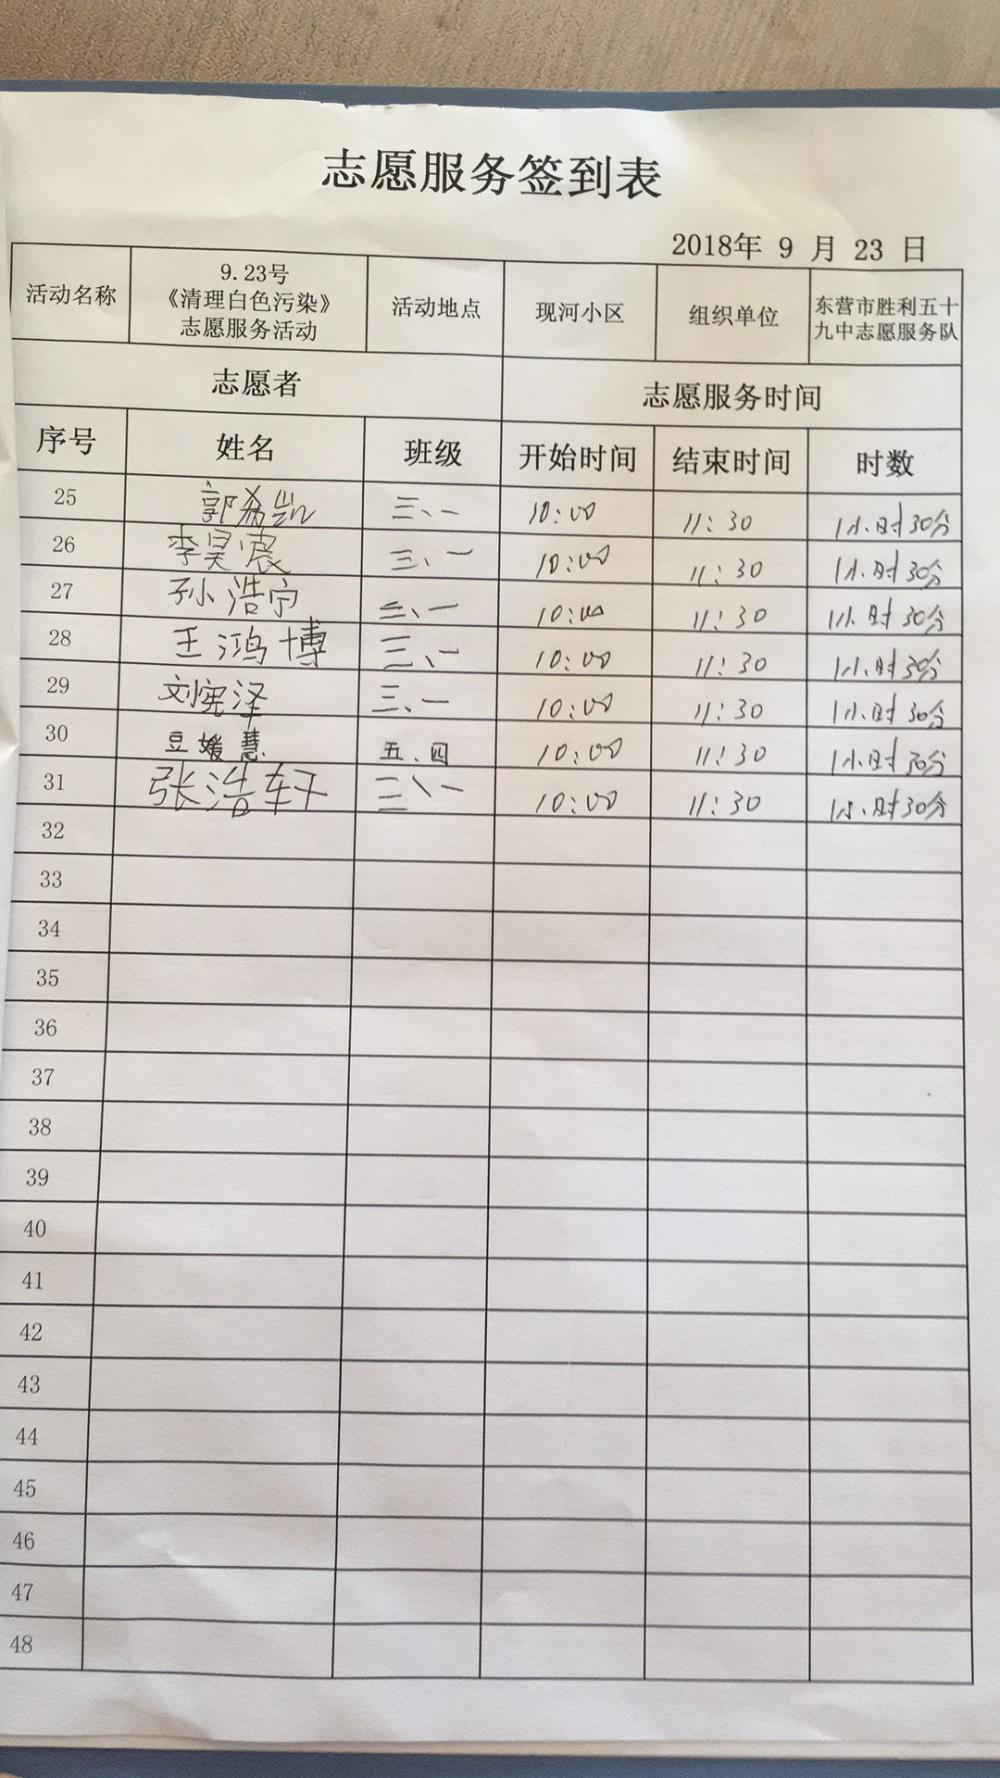 志愿服务签到表
2018年 9 月 23 日
活动名称 9.23号《清理白色污染》志愿服务活动 活动地点 现河小区 组织单位 东营市胜利五十九中志愿服务队
志愿者 志愿服务时间
序号 姓名 班级 开始时间 结束时间 时数
25 郭希凯 三、一 10:00 11:30 1小时30分
26 李昊震 三、一 10:00 11:30 1小时30分
27 孙浩宁 三、一 10:00 11:30 1小时30分
28 王鸿博 三、一 10:00 11:30 1小时30分
29 刘宪泽 三、一 10:00 11:30 1小时30分
30 豆媛慧 五.四 10:00 11:30 1小时30分
31 张浩轩 三、一 10:00 11:30 1小时30分
32
33
34
35
36
37
38
39
40
41
42
43
44
45
46
47
48